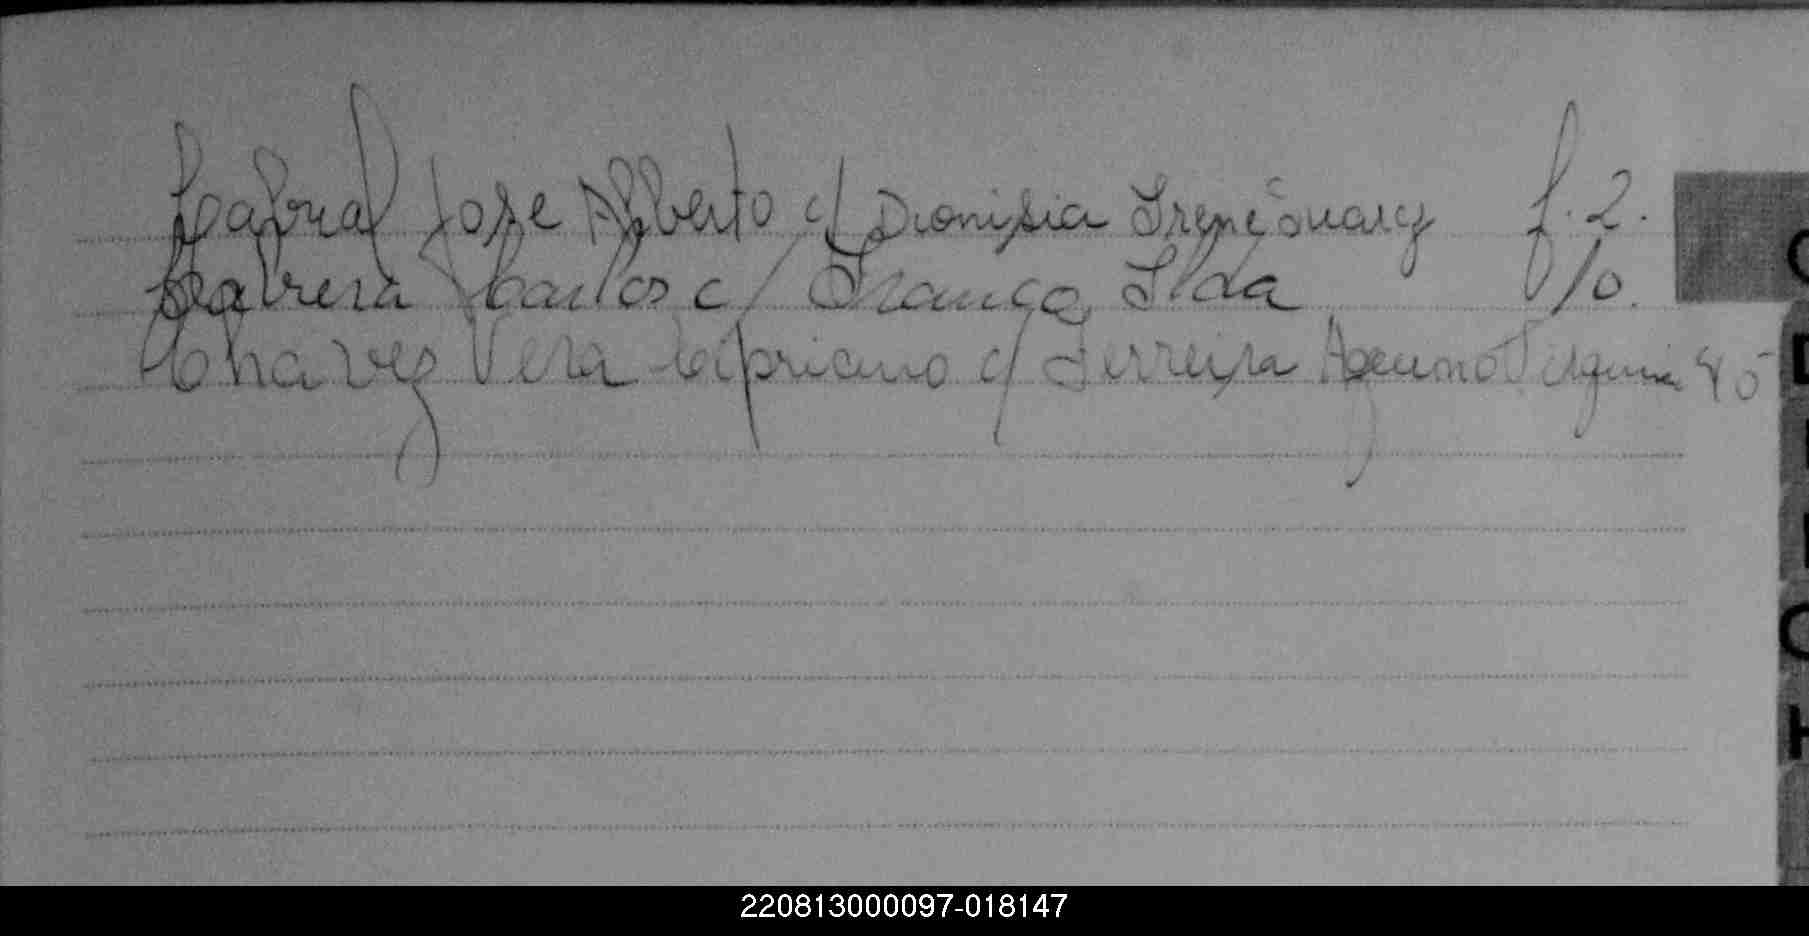 Cabral Jose Alberto c/ Dionisia Irene Suarez f. 2.
Cabrera Carlos c/ Franco Ilda f 10.
Chavez Vera Cipriano c/ Ferreira
C
D
H
220813000097-018147